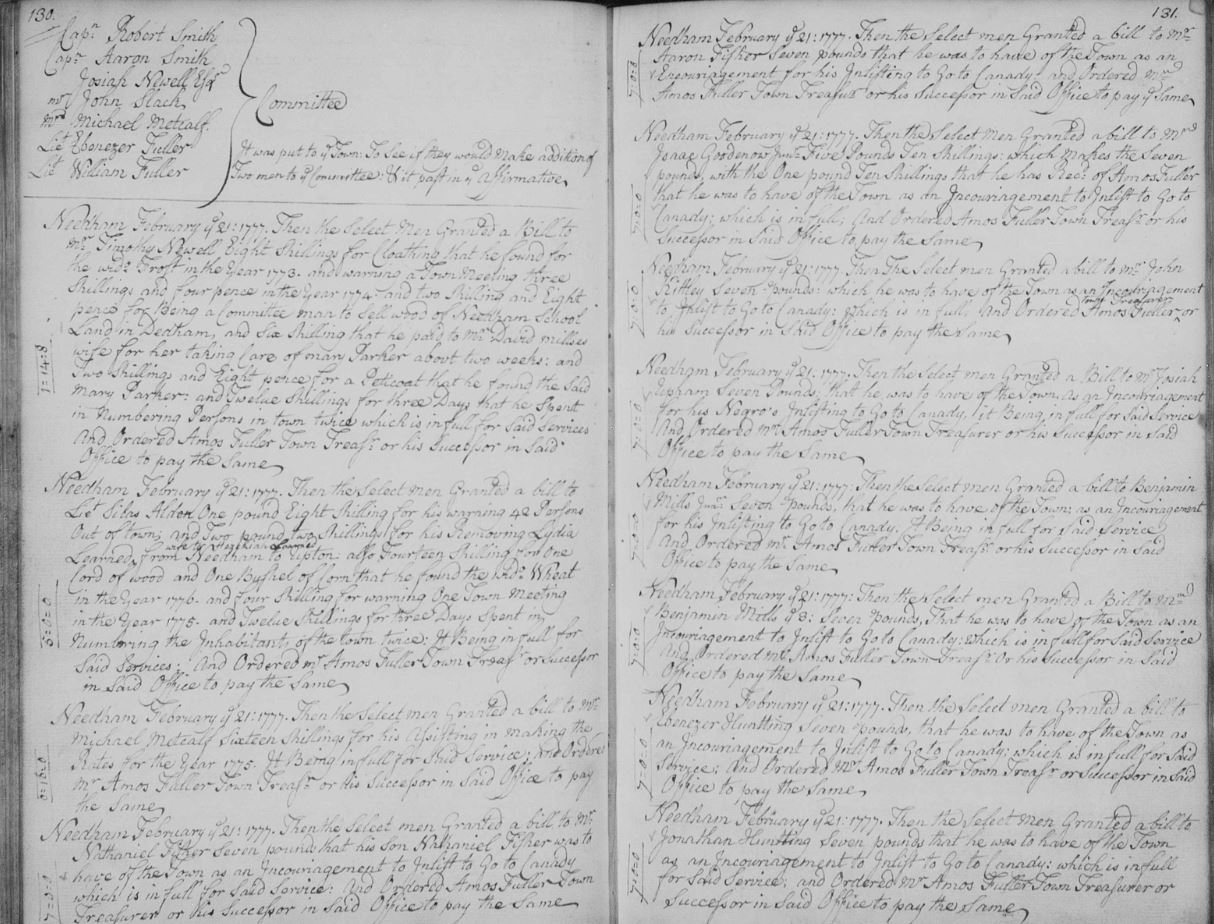 130.
Capn Robert Smith
Capn Aaron Smith
Josiah Newell Esqr
mr John Slack
mr Michael Metcalf
Lit Ebenezer Fuller
Lit William Fuller
Committee
It was put to ye Town: To See if they would Make addition of
Two men to ye Committee: & it past in ye Affirmative
Needham February ye 21: 1777. Then the Select Men Granted a Bill to
mr Timothy Newell Eight Shillings for Cloathing that he found for
the widw Frost in the Year 1773. and warning a Town Meeting three
Shillings and four pence in the Year 1774 and two Shilling and Eight
pence for Being a Committee man to Sell wood of Needham School
Land in Dedham, and Six Shilling that he paid to Mr David
wife for her taking Care of mary Parker about two weeks: and
Two Shillings and Eight pence for a Peticoat that he found the Said
Mary Parker: and Twelve Shillings for three Days that he Spent
in Numbering Persons in town twice which is in full for Said Services
And Ordered Amos Fuller Town Treasr or his Successor in Said
Office to pay the Same
1=14=8
Needham February ye 21: 1777. Then the Select men Granted a bill to
Lit Silas Alden One pound Eight Shilling for his warning 42 Persons
Out of town; and Two pound two Shillings for his Removing Lydia
Learned from Needham to Upton: also Fourteen Shilling for One
Cord of wood and One Bushel of Corn that he found the widw Wheat
in the Year 1776. and four Shilling for warning One Town Meeting
in the Year 1775. and Twelve Shillings for three Days Spent in
Numbering the Inhabitants of the town twice: It Being in full for
Said Services: And Ordered mr Amos Fuller Town Treasr or Successor
in Said Office to pay the Same
5=0=0
Needham February ye 21: 1777. Then the Select men Granted a bill to mr
Michael Metcalf Sixteen Shillings for his Assisting in making the
Rates for the Year 1775. It Being in full for Said Service; and Ordered
mr Amos Fuller Town Treasr or His Successor in Said Office to pay
the Same
0=16=0
Needham February ye 21: 1777. Then the Select men Granted a bill to Mr
Nathaniel Fisher Seven pounds that his son Nathaniel Fisher was to
have of the Town as an Incouragement to Inlist to Go to Canady
which is in full for Said Service: And Ordered Amos Fuller Town
Treasurer or his Successor in Said Office to pay the Same
7=0=0
131.
Needham February ye 21: 1777. Then the Select men Granted a bill to Mr
Aaron Fisher Seven pounds that he was to have of the Town as an
Encouragement for his Inlisting to Go to Canady: and Ordered Mr
Amos Fuller Town Treasur or his Successor in Said Office to pay ye Same
7=0=0
Needham February ye 21: 1777. Then the Select Men Granted a bill to Mr
Isaac Goodenow Junr Five Pounds Ten Shillings: which Makes the Seven
pounds, with the One pound Ten Shillings that he has Recd of Amos Fuller
that he was to have of the Town as an Incouragement to Inlist to Go to
Canady: which is in full; And Ordered Amos Fuller Town Treasr or his
Successor in Said Office to pay the Same
7=0=0
Needham, February ye 21: 1777. Then The Select men Granted a bill to Mr John
Seven Pounds: which he was to have of the Town as an Incouragement
to Inlist to Go to Canady: which is in full; And Ordered Amos Fuller Town Treasurer or
his Successor in Said Office to pay the Same
7=0=0
Needham February ye 21: 1777. Then the Select men Granted a Bill to Mr Josiah
Upham Seven Pounds; that he was to have of the Town, as an Incouriagement
for his Negro's Inlisting to Go to Canady, it Being in full for Said Service
And Ordered Mr Amos Fuller Town Treasurer or his Successor in Said
Office to pay the Same
7=0=0
Needham February ye 21: 1777: Then the Select men Granted a bill to Benjamin
Mills Junr Seven Pounds, that he was to have of the Town; as an Incouriagement
for his Inlisting to Go to Canady. It Being in full for Said Service
And Ordered mr Amos Fuller Town Treasr or his Successor in Said
Office to pay the Same
7=0=0
Needham February ye 21: 1777: Then the Select men Granted a Bill to Mr
Benjamin Mills ye 3: Seven Pounds, That he was to have of the Town as an
Incouragement to Inlist to Go to Canady: which is in full for Said Service
And Ordered Mr Amos Fuller Town Treasr Or his Successor in Said
Office to pay the Same
7=0=0
Needham February ye 21: 1777. Then the Select men Granted a bill to
Ebenezer Huntting Seven Pounds, that he was to have of the Town as
an Incouragement to Inlist to Go to Canady: which is in full for Said
Service; And Ordered Mr Amos Fuller Town Treasr or Successor in Said
Office to pay the Same
7=0=0
Needham February ye 21: 1777. Then the Select men Granted a bill to
Jonathan Huntting Seven pounds that he was to have of the Town
as an Incouragement to Inlist to Go to Canady: which is in full
for Said Service; and Ordered Mr Amos Fuller Town Treasurer or
Successor in Said Office to pay the Same
7=0=0